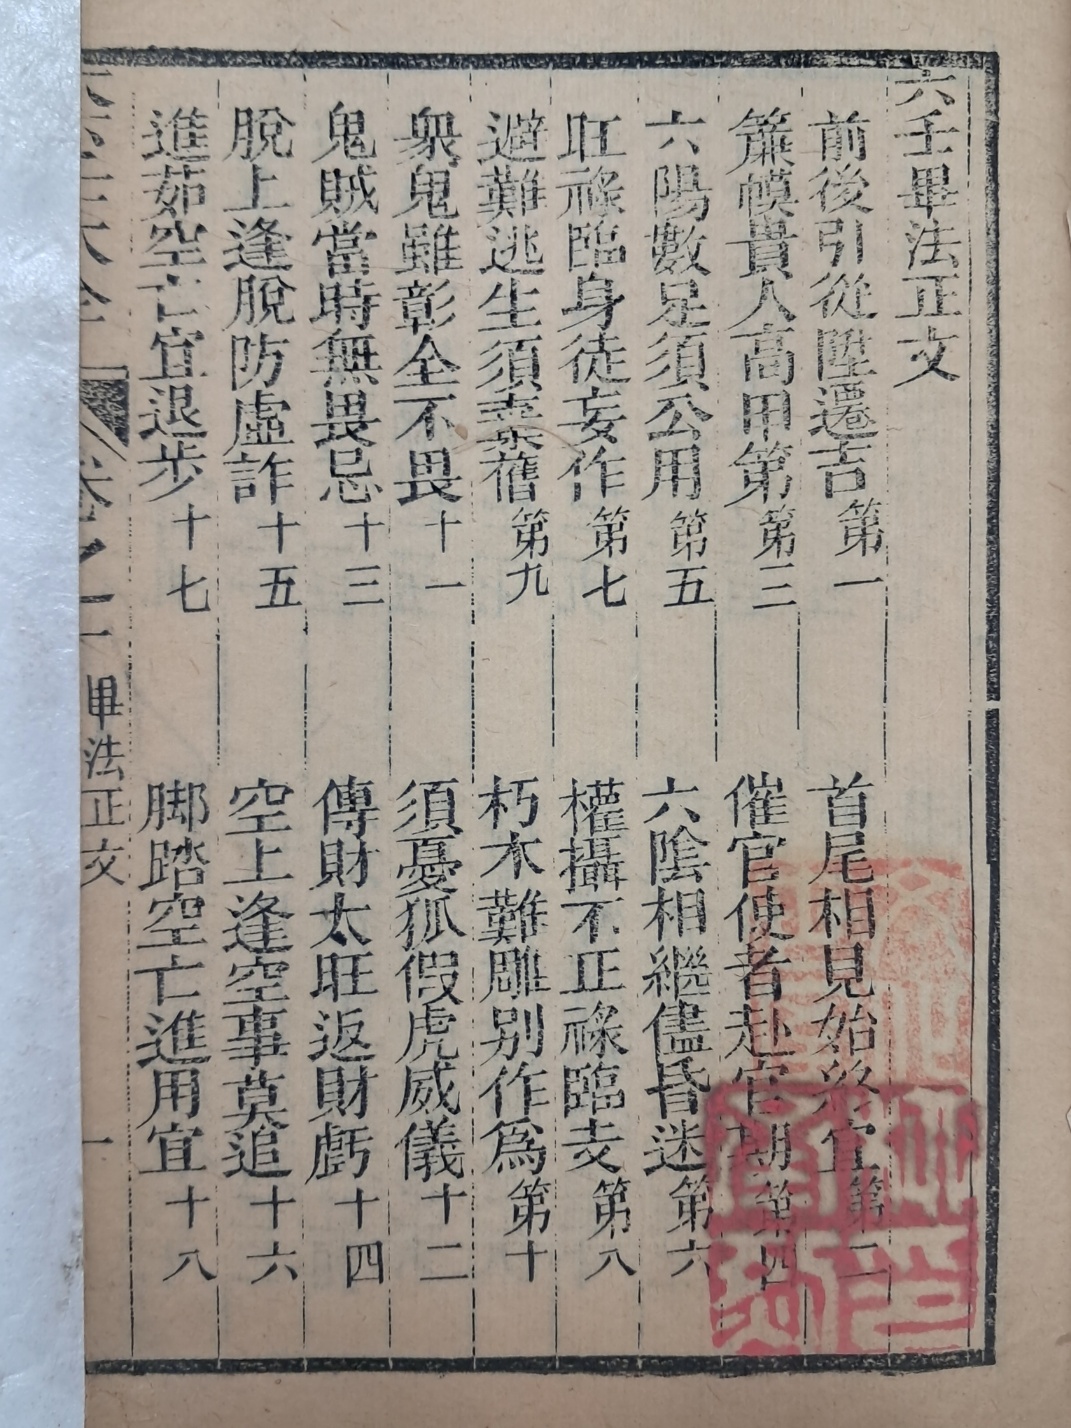 六壬畢法正文
前後引從陞遷吉第一
首尾相見始終宜第二
簾幙貴人高甲第第三
催官使者赴官期第四
六陽數足須公用第五
六陰相繼儘昏迷第六
旺祿臨身徒妄作第七
權攝不正祿臨支第八
避難逃生須棄舊第九
朽木難雕別作爲第十
衆鬼雖彰全不畏十一
須憂狐假虎威儀十二
鬼賊當時無畏忌十三
傳財太旺返財虧十四
脫上逢脫防虛詐十五
空上逢空事莫追十六
進茹空亡宜退步十七
脚踏空亡進用宜十八
六壬大全
卷之一
畢法正文
一